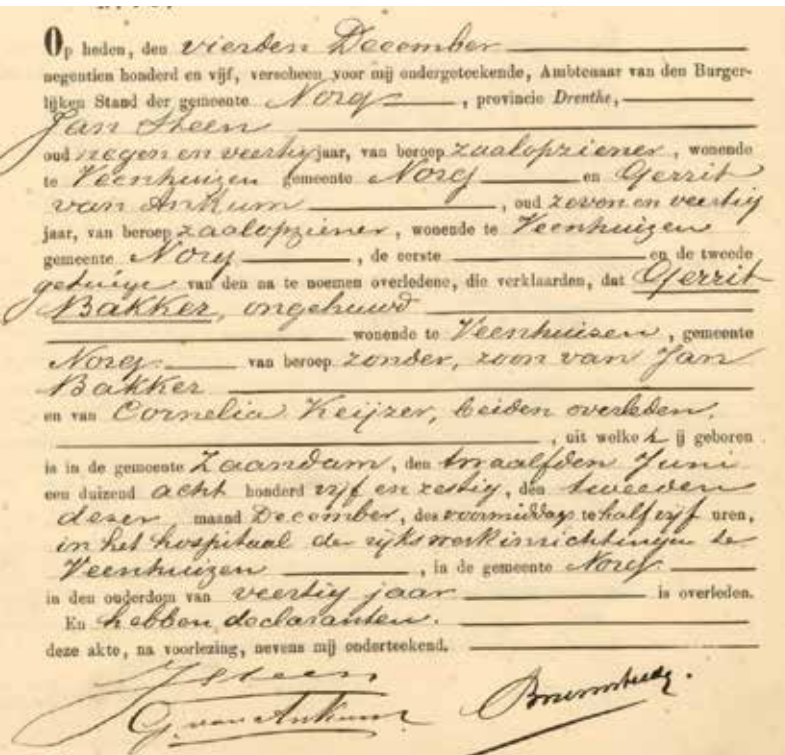 Op heden, den vierden December
negentien honderd en vijf, verscheen voor mij ondergeteekende, Ambtenaar van den Burger-
lijken Stand der gemeente Norg, provincie Drenthe,
Jan Steen
oud negen en veertig jaar, van beroep zaalopziener, wonende
te Veenhuizen gemeente Norg en Gerrit
van Ankum, oud zeven en veertig
jaar, van beroep zaalopziener, wonende te Veenhuizen
gemeente Norg, de eerste en de tweede
getuige van den na te noemen overledene, die verklaarden, dat Gerrit
Bakker, ongehuwd
wonende te Veenhuizen, gemeente
Norg van beroep zonder, zoon van Jan
Bakker
en van Cornelia Keijzer, beiden overleden,
, uit welke hij geboren
is in de gemeente Zaandam, den twaalfden Juni
een duizend acht honderd vijf en zestig, den tweeden
dezer maand December, des voormiddags te half vijf uren,
in het hospitaal der rijkswerkinrichtingen te
Veenhuizen, in de gemeente Norg
in den ouderdom van veertig jaar is overleden.
En hebben declaranten.
deze akte, na voorlezing, nevens mij onderteekend.
J Steen
G. van Ankum